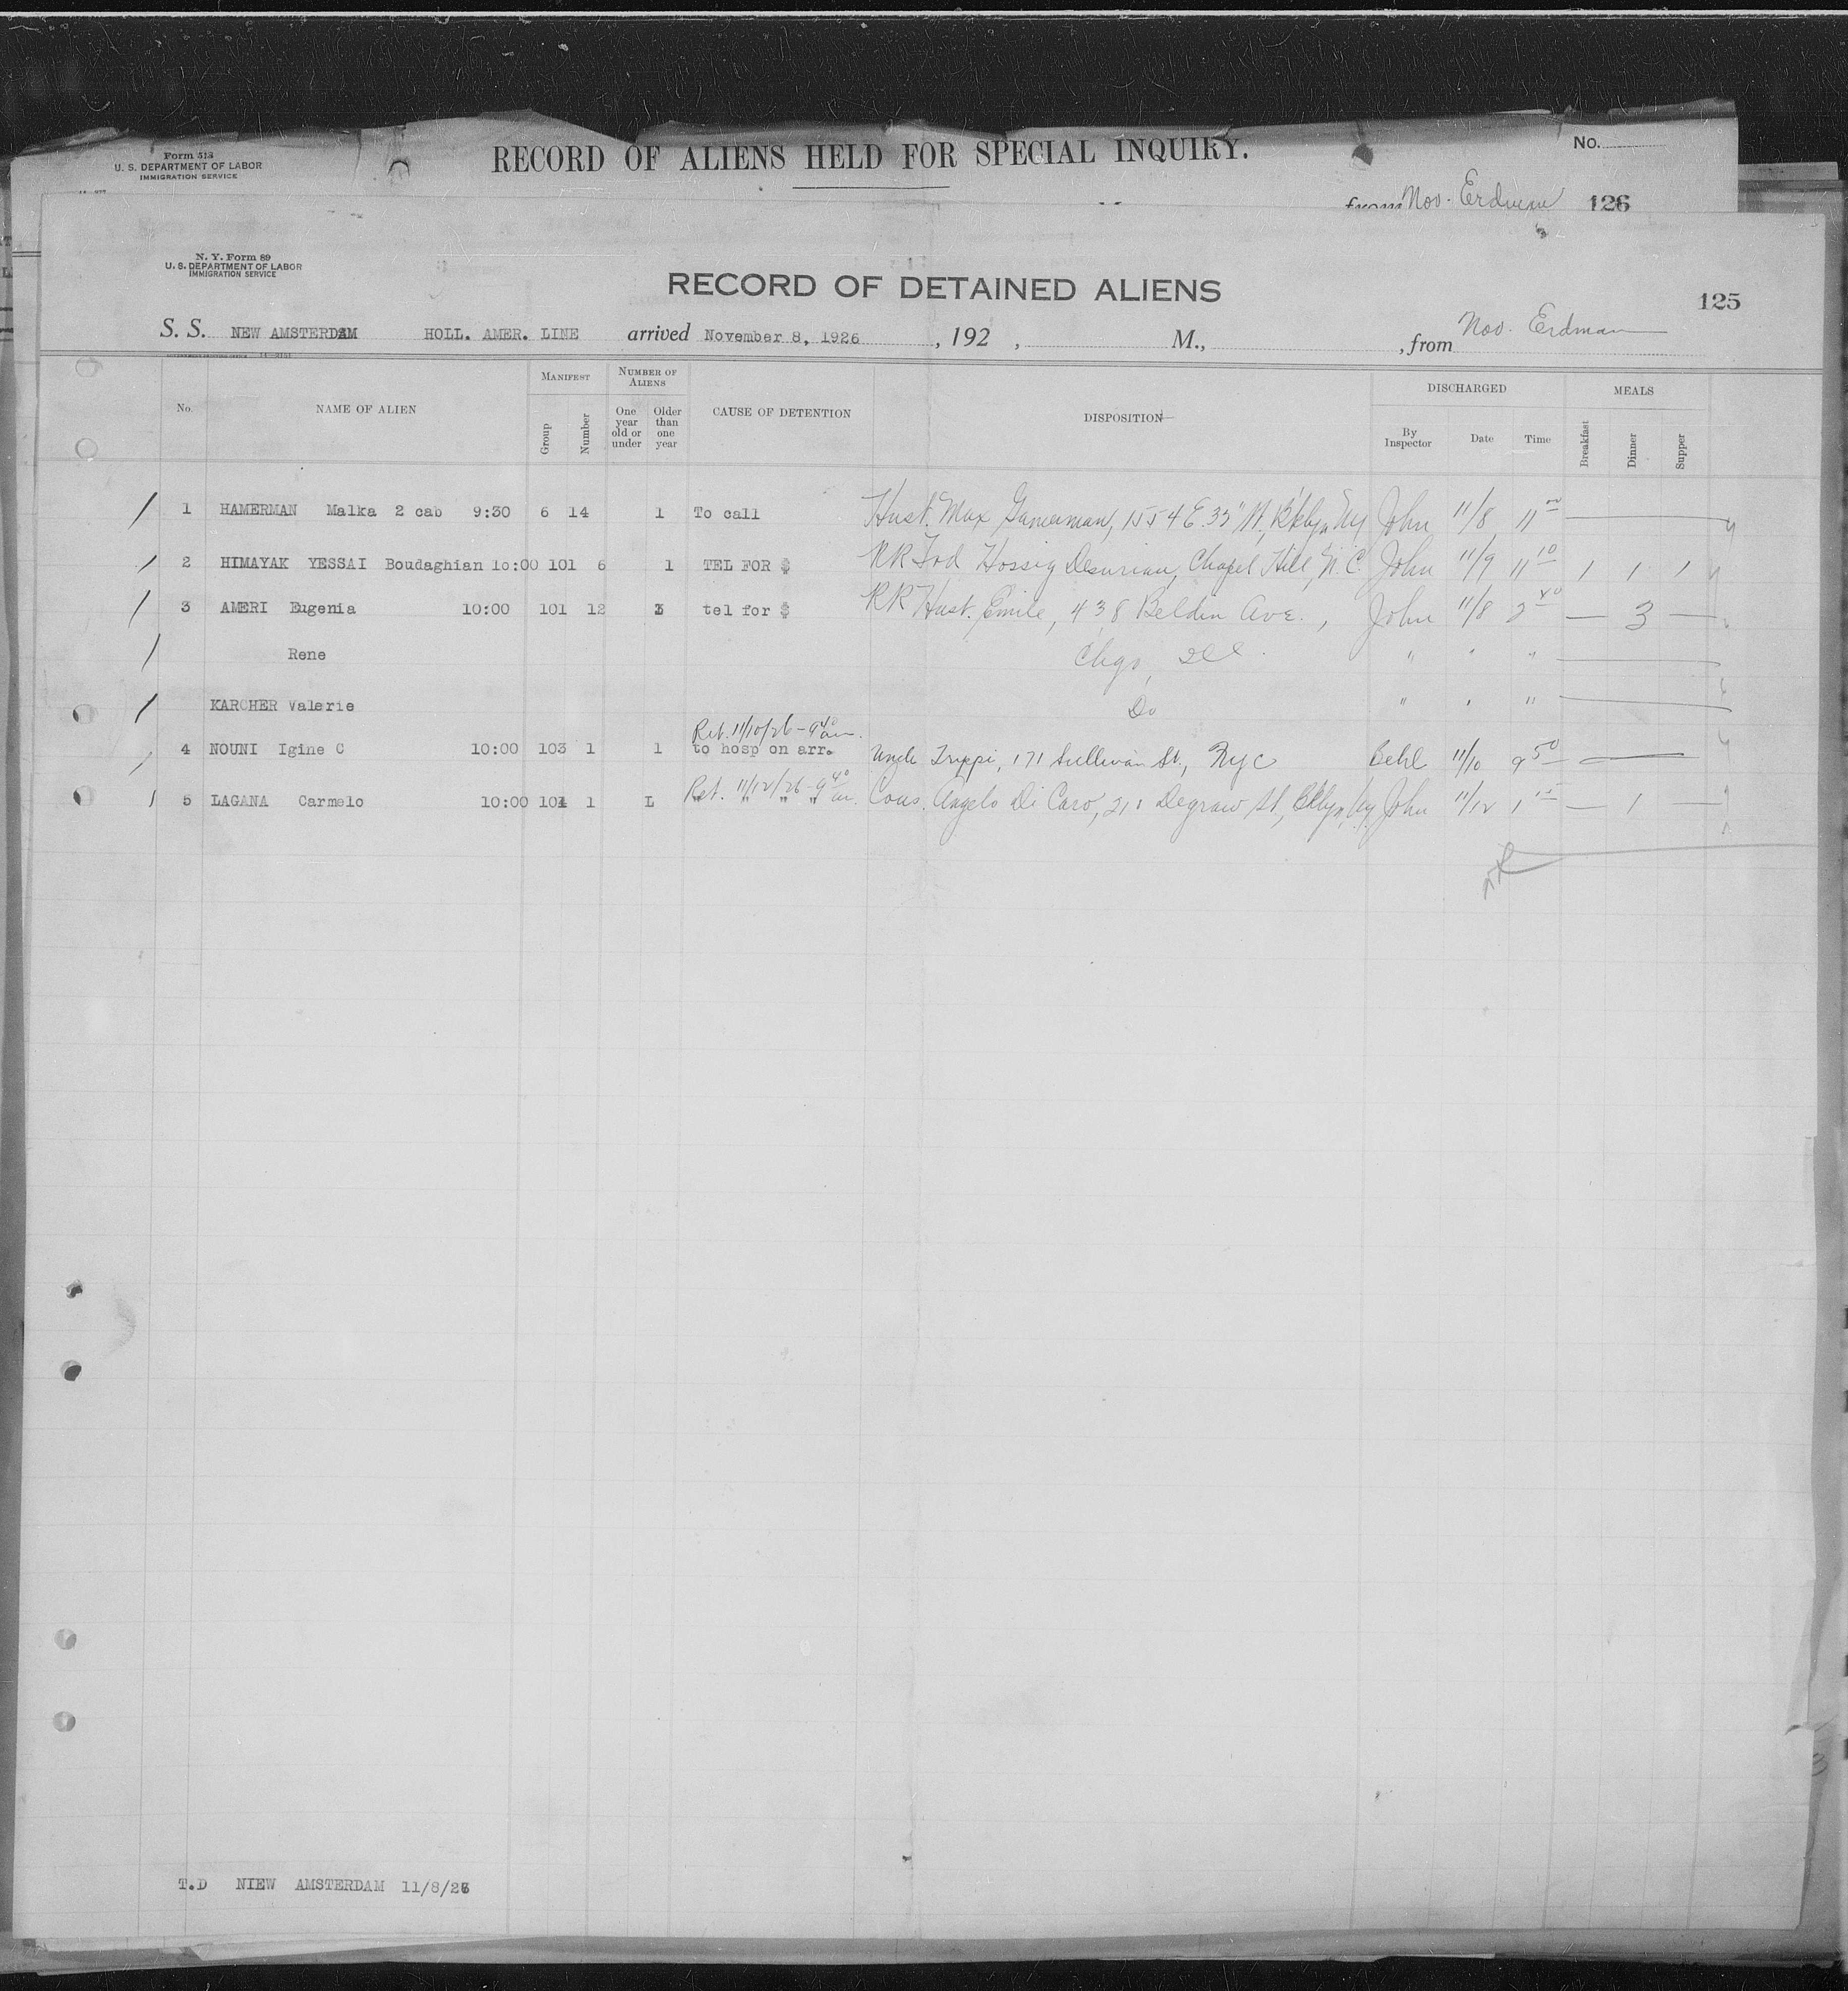 Form 513
U. S. DEPARTMENT OF LABOR
IMMIGRATION SERVICE
RECORD OF ALIENS HELD FOR SPECIAL INQUIRY.
No.
from Nov. 126
N. Y. Form 89
U. S. DEPARTMENT OF LABOR
IMMIGRATION SERVICE
RECORD OF DETAINED ALIENS
125
S. S. NEW AMSTERDAM HOLL. AMER. LINE arrived November 8, 1926, 192 , M., , from Nov. Erdman
No. NAME OF ALIEN MANIFEST Group Number NUMBER OF ALIENS One year old or under Older than one year CAUSE OF DETENTION DISPOSITION DISCHARGED By Inspector Date Time MEALS Breakfast Dinner Supper
1 HAMERMAN Malka 2 cab 9:30 6 14 1 To call Husb. Max Gamerman, 1554 E. 35" St, Bklyn NY John 11/8 11 00
2 HIMAYAK YESSAI Boudaghian 10:00 101 6 1 TEL FOR $ RR Hossig Desurian, Chapel Hill, N.C. John 11/9 11 10 1 1 1
3 AMERI Eugenia 10:00 101 12 3 tel for $ RR Husb. Emile, 438 Belden Ave., John 11/8 2 40 — 3 —
Rene Chgo, Ill. " " "
KARCHER Valerie Do " " "
Ret. 11/10/26 - 9 40 am.
4 NOUNI Igine C 10:00 103 1 1 to hosp on arr. Uncle Trippi, 171 Sullivan St., NYC Behl 11/10 9 50
Ret. 11/12/26 - 9 40 am.
5 LAGANA Carmelo 10:00 104 1 L " " " " Cous. Angelo Di Caro, 211 Degraw St, Bklyn, NY John 11/12 1 15 — 1 —
T.D NIEW AMSTERDAM 11/8/26